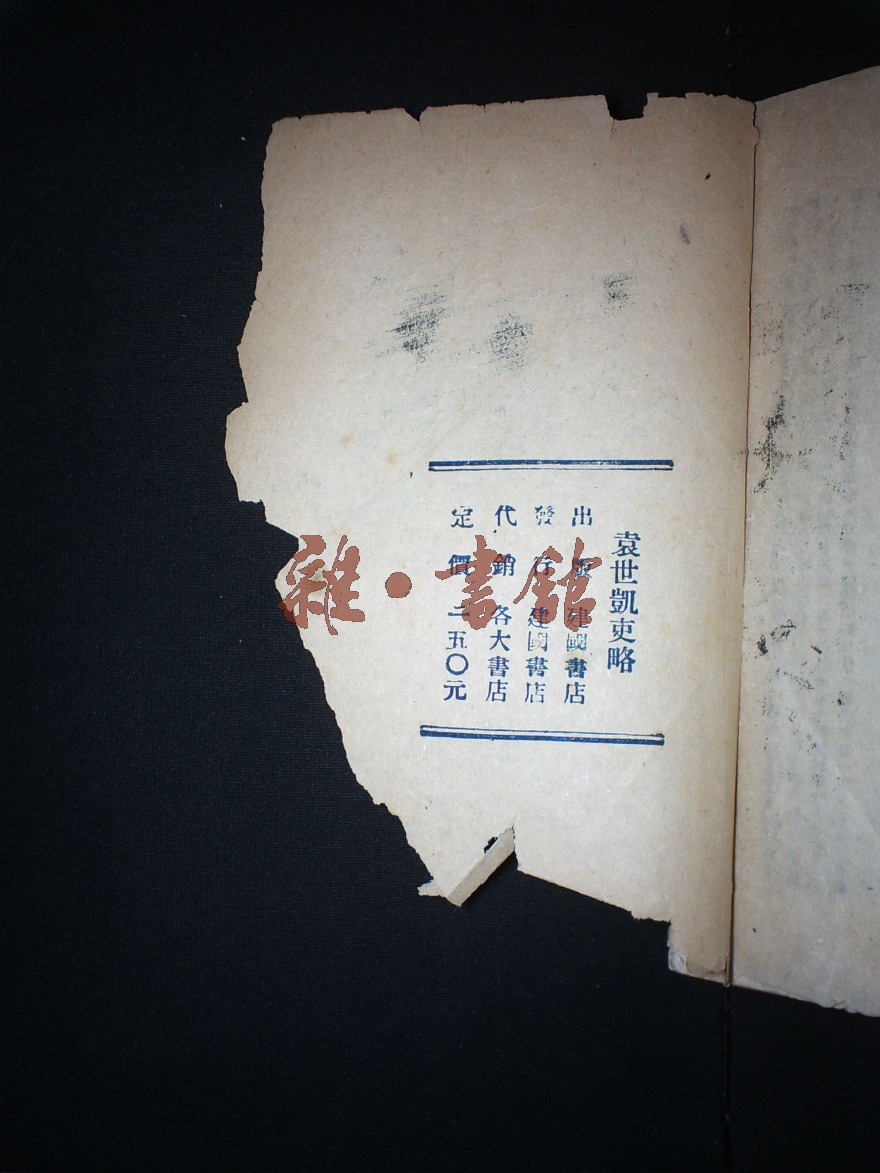 袁世凱吏略
出 建國書店
發行 建國書店
代銷 各大書店
定價 二五〇元
雜·書館